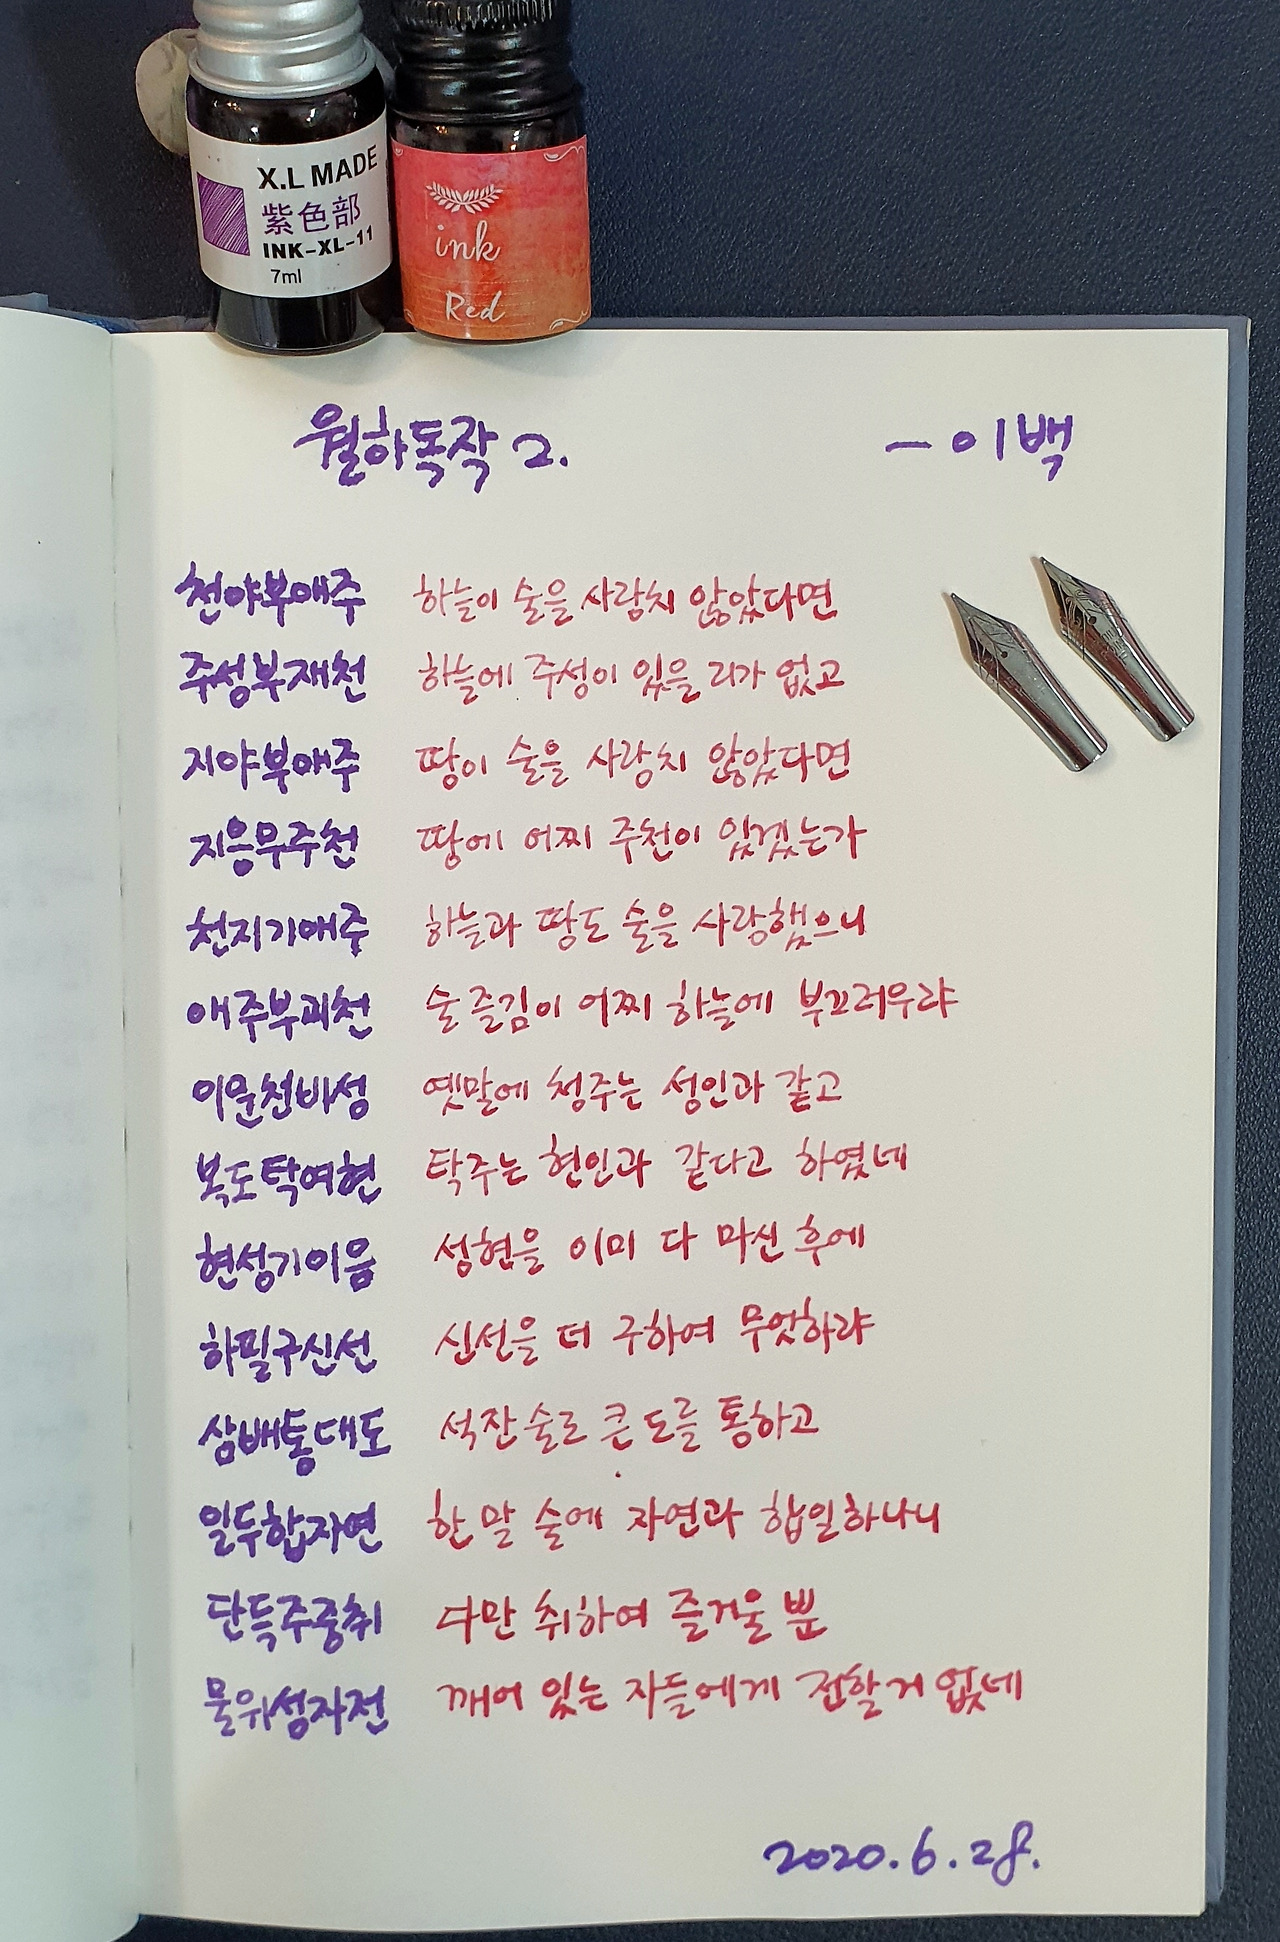 X.L MADE
紫色部
INK-XL-11
7ml
ink
Red
월하독작 2. - 이백
천야부애주 하늘이 술을 사랑치 않았다면
주성부재천 하늘에 주성이 있을 리가 없고
지야부애주 땅이 술을 사랑치 않았다면
지응무주천 땅에 어찌 주천이 있겠는가
천지기애주 하늘과 땅도 술을 사랑했으니
애주부괴천 술 즐김이 어찌 하늘에 부끄러우랴
이문천비성 옛말에 청주는 성인과 같고
복도탁여현 탁주는 현인과 같다고 하였네
현성기이음 성현을 이미 다 마신 후에
하필구신선 신선을 더 구하여 무엇하랴
삼배통대도 석잔 술로 큰 도를 통하고
일두합자연 한 말 술에 자연과 합일하나니
단득주중취 다만 취하여 즐거울 뿐
물위성자전 깨어 있는 자들에게 전할 거 없네
2020.6.28.